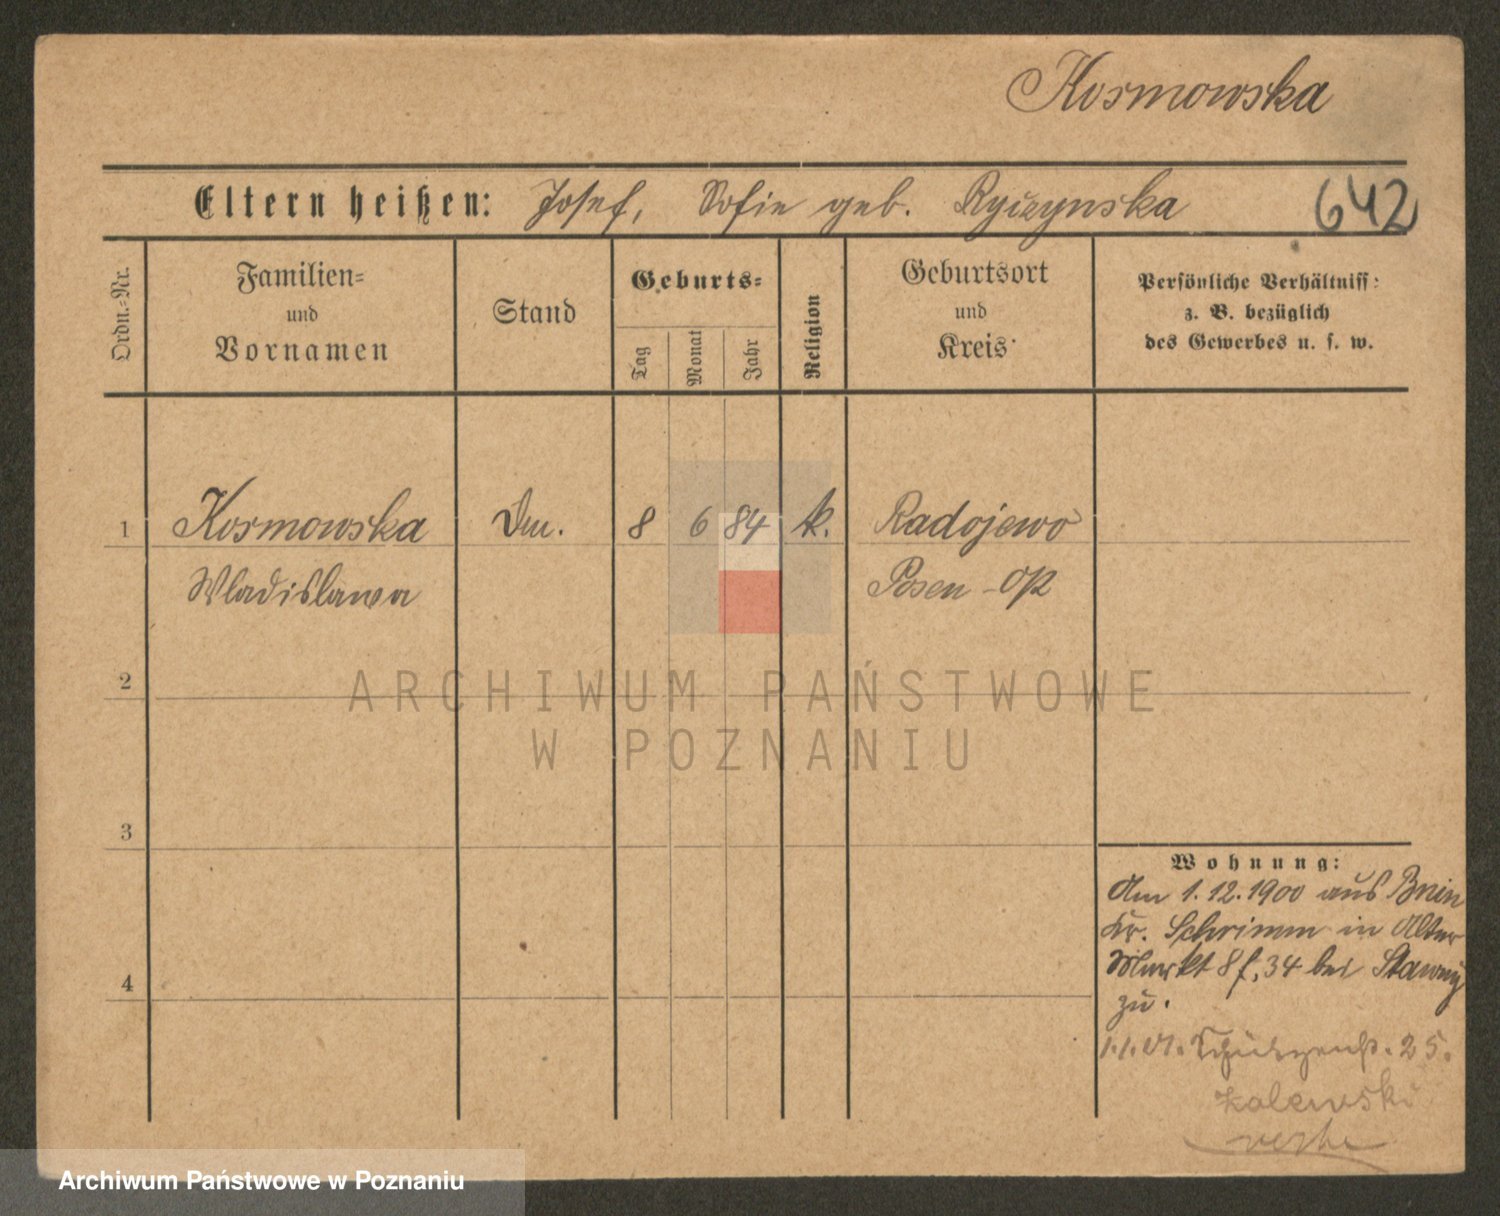 Kosmowska
Eltern heißen: Josef, Sofie geb. Ryczynska
642
Ordn.=Nr.
Familien=
und
Vornamen
Stand
Geburts=
Tag
Monat
Jahr
Religion
Geburtsort
und
Kreis
Persönliche Verhältniss:
z. B. bezüglich
des Gewerbes u. s. w.
1 Kosmowska 8 6 84 k. Radojewo
Wladislawa Posen - Op
2
ARCHIWUM PAŃSTWOWE
W POZNANIU
3
4
Wohnung:
Am 1.12.1900 aus Bnin
Kr. Schrimm in Alter
Markt 8 f, 34 bei
zu.
1.1.01. Schützenstr. 25.
Archiwum Państwowe w Poznaniu